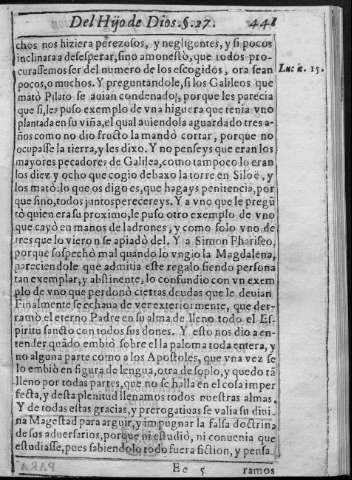 Del Hijo de Dios. §. 27. 441
chos nos hiziera perezosos, y negligentes, y si pocos
inclinara a desesperar, sino amonestò, que todos pro-
curassemos ser del numero de los escogidos, ora sean
pocos, o muchos. Y preguntandole, si los Galileos que
matò Pilato se auian condenado, porque les parecia
que si, les puso exemplo de vna higuera que tenia vno
plantada en su viña, el qual auiendola aguardado tres a-
ños como no dio fructo la mandò cortar, porque no
ocupasse la tierra, y les dixo. Y no penseys que eran los
mayores pecadores de Galilea, como tampoco lo eran
los diez y ocho que cogio debaxo la torre en Siloè, y
los matò: lo que os digo es, que hagays penitencia, por
que sino, todos juntos perecereys. Y a vno que le pregũ
tò quien era su proximo, le puso otro exemplo de vno
que cayò en manos de ladrones, y como solo vno de
tres que lo vieron se apiadò del. Y a Simon Phariseo,
porque sospechò mal quando lo vngio la Magdalena,
pareciendole que admitia este regalo siendo persona
tan exemplar, y abstinente, lo confundio con vn exem
plo de vno que perdonò ciertas deudas que le deuian
Finalmente se echaua de ver exteriormente, que der-
ramò el eterno Padre en su alma de lleno todo el Es-
piritu sancto con todos sus dones. Y esto nos dio a en-
tender quãdo embiò sobre el la paloma toda entera, y
no alguna parte como a los Apostoles, que vna vez se
lo embiò en figura de lengua, otra de soplo, y quedo tã
lleno por todas partes, que no se halla en el cosa imper
fecta, y desta plenitud llenamos todos nuestras almas.
Y de todas estas gracias, y prerogatiuas se valia su diui-
na Magestad para arguir, y impugnar la falsa doctrina
de sus aduersarios, porque ni estudiò, ni conuenia que
estudiasse, pues sabiendolo todo fuera fiction, y pensa
Ee 5 ramos
Luc. 15.